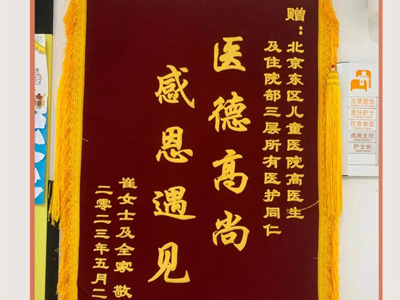 赠：北京东区儿童医院高医生
及住院部三层所有医护同仁
医德高尚
感恩遇见
崔女士及全家 敬
二〇二三年五月二
主管医生
责任护士
饮食类型
病房主任
护士长